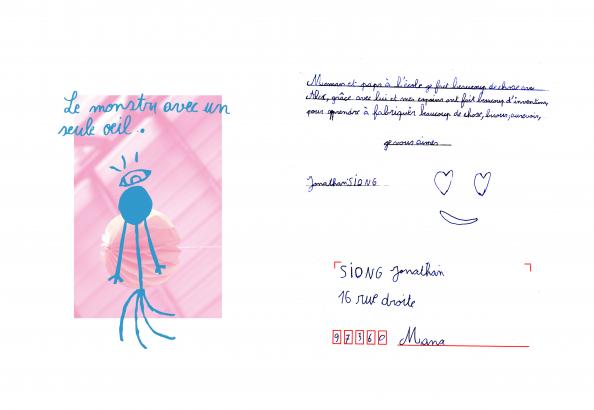 Le monstre avec un
seule oeil.
Maman et papa à l'école je fait beaucoup de chose avec
Alex, grâce avec lui et mes copains ont fait beaucoup d'inventions,
pour apprendre à fabriquèr beaucoup de chose, bisous, aurevoir,
je vous aimes
Jonathan SIONG
SIONG Jonathan
16 rue droite
97360 Mana